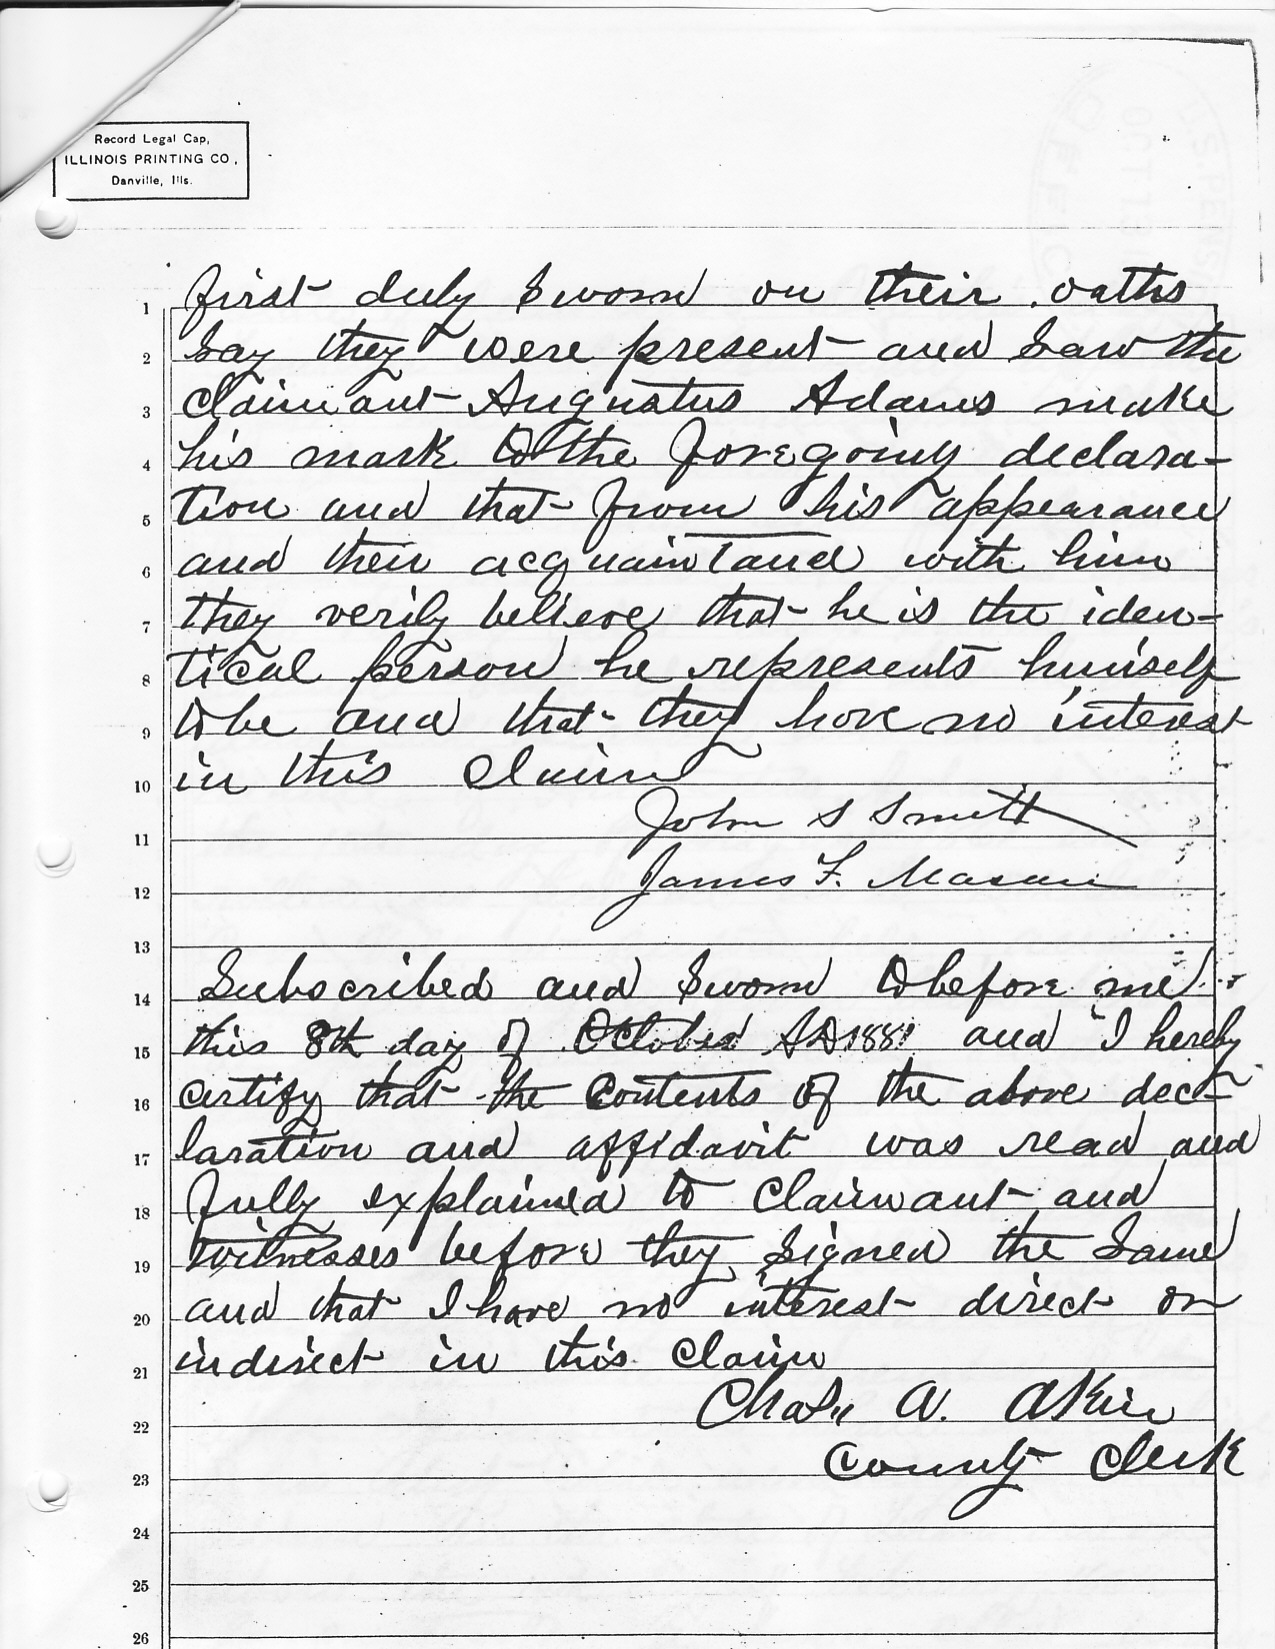 Record Legal Cap,
ILLINOIS PRINTING CO,
Danville, Ills.
1 first duly Sworn on their oaths
2 Say they were present and Saw the
3 Claimant Augustus Adams make
4 his mark to the foregoing declara-
5 tion and that from his appearance
6 and their acquaintance with him
7 they verily believe that he is the iden-
8 tical person he represents himself
9 to be and that they have no interest
10 in this Claim
11 John S Smith
12 James F. Mason
13
14 Subscribed and Sworn to before me
15 this 8th day of October AD 1881 and I hereby
16 certify that the Contents of the above dec-
17 laration and affidavit was read and
18 fully explained to Claimant and
19 witnesses before they Signed the Same
20 and that I have no interest direct or
21 indirect in this Claim
22 Chas. A. Akin
23 County Clerk
24
25
26